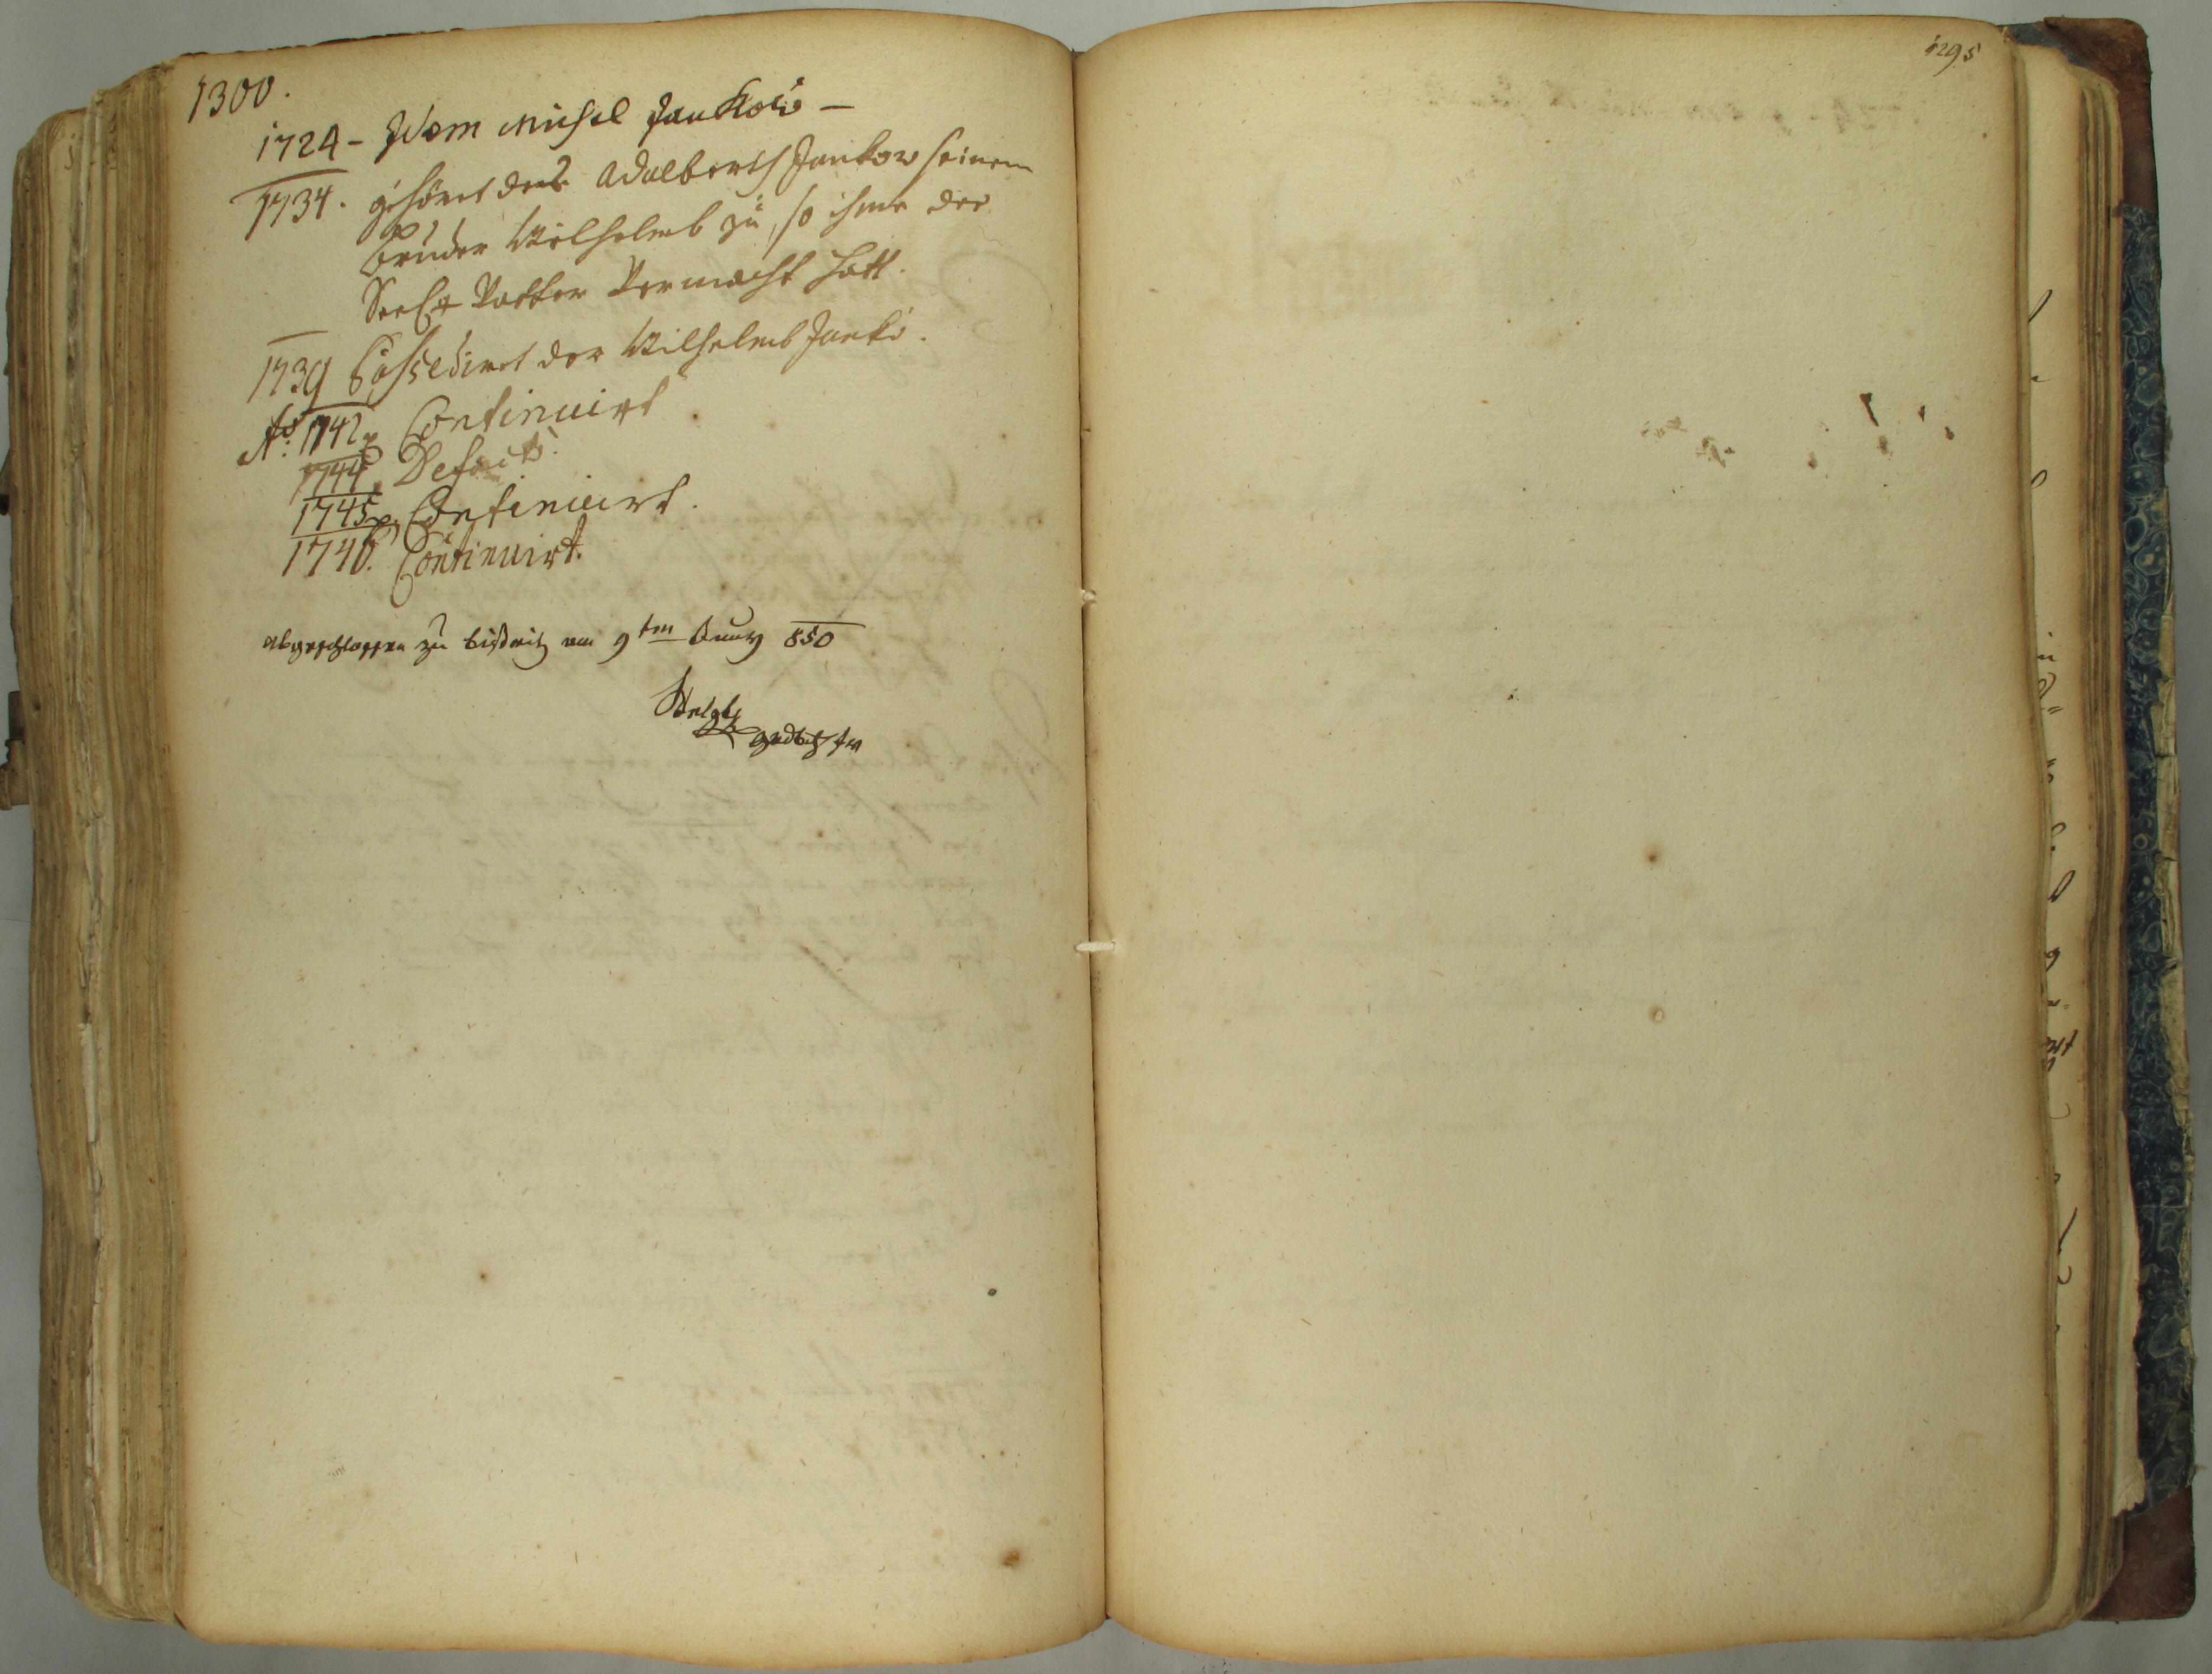 1300.
1724 - Dem Michel Jankow -
1734. gehöret des Adalberth Jankow seinem
Bruder Wilhelmb zu, so ihme der
Seel: Vatter Vermacht hatt.
1739 Possedirt der Wilhelmb Janko.
Ao: 1742 Continuirt
1744 Defacto.
1745 Continuirt.
1746. Continuirt.
abgeschlossen zu Bistritz am 9ten 850
1295